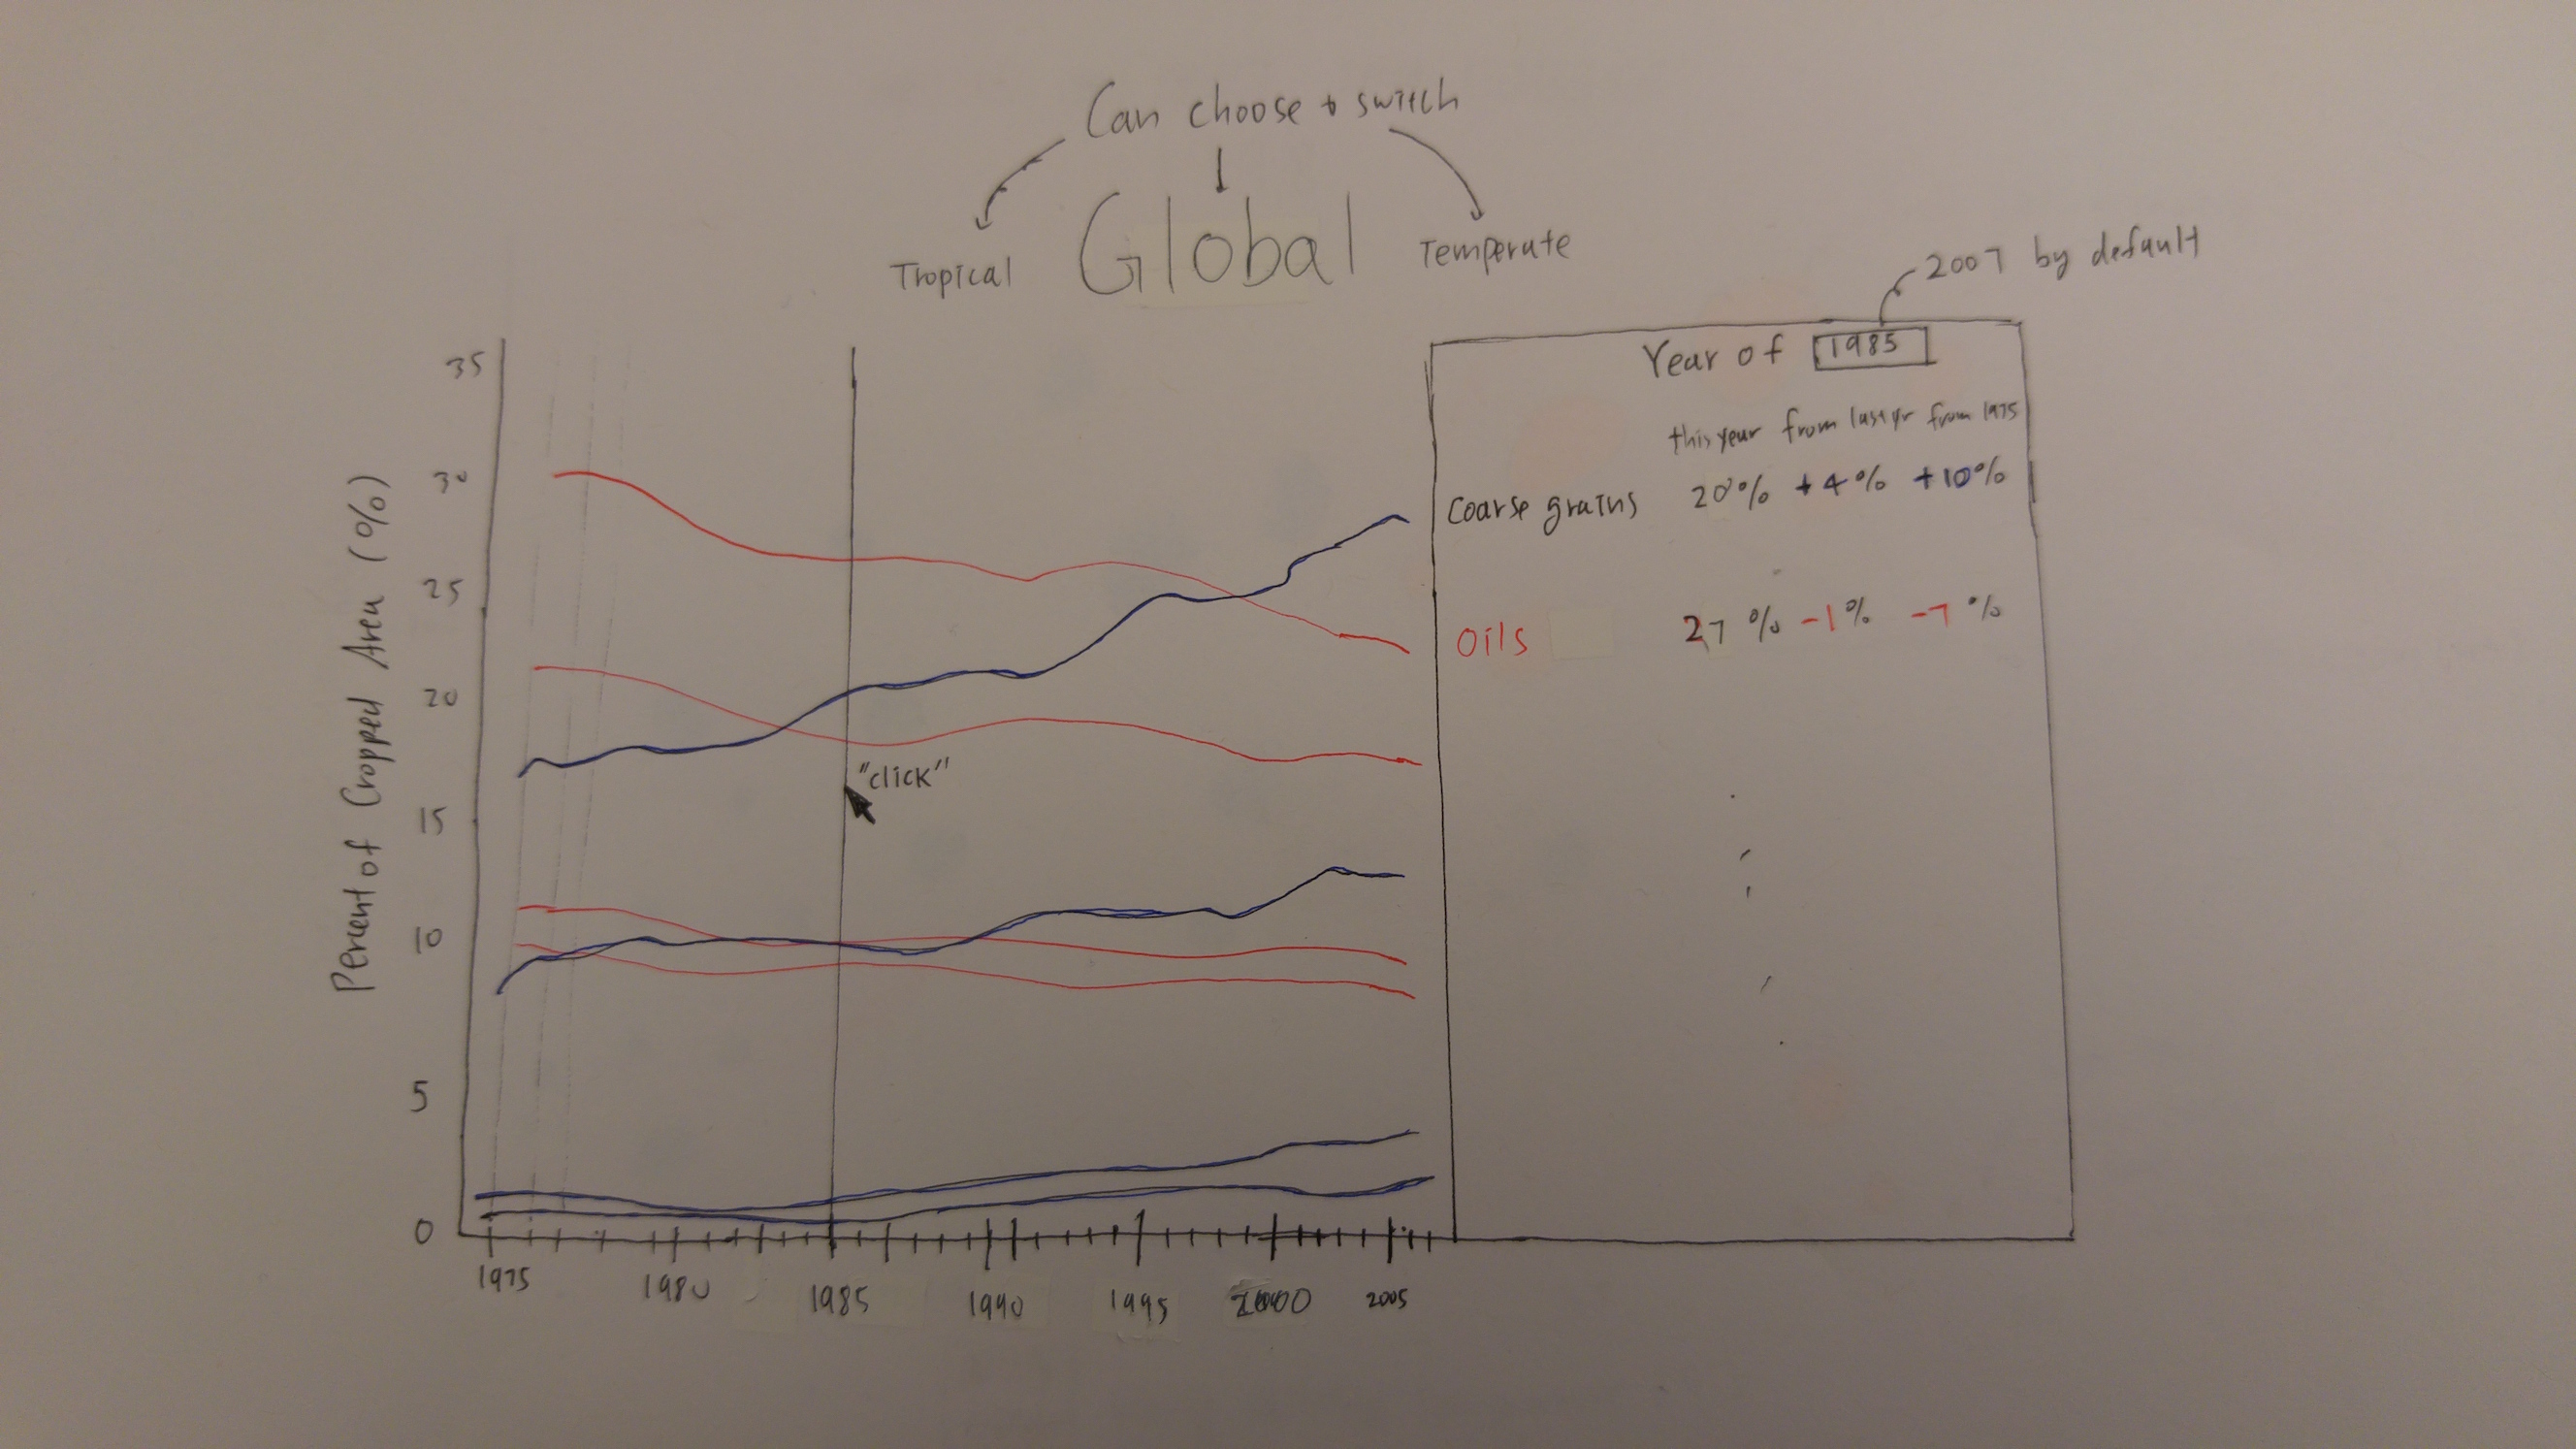 Can choose to switch
Tropical Global Temperate
2007 by default
Year of 1985
this year from last yr from 1975
Coarse grains 20% +4% +10%
Oils 27% -1% -7%
Percent of Cropped Area (%)
35
30
25
20
15
10
5
0
"click"
1975 1980 1985 1990 1995 2000 2005